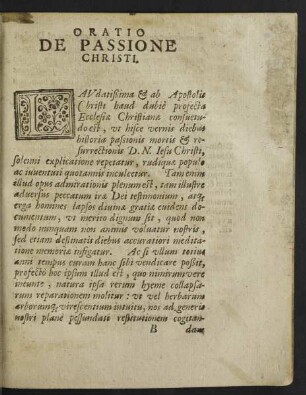 ORATIO
DE PASSIONE
CHRISTI.
LAVdatißima & ab Apostolis
Christi haud dubiè profecta
Ecclesiæ Christianæ consuetu-
do est, vt hisce vernis diebus
historia passionis mortis & re-
surrectionis D. N. Iesu Christi,
solemni explicatione repetatur, rudiquæ populo
ac iuventuti quotannis inculcetur. Tam enim
illud opus admirationis plenum est, tam illustre
adversus peccatum iræ Dei testimonium, atque
erga homines lapsos divinæ gratiæ evidens do-
cumentum, vt meritò dignum sit, quod non
modo nunquam non animis voluatur nostris,
sed etiam destinatis diebus accuratiori medita-
tione memoriæ infigatur. Ac si vllum totius
anni tempus curam hanc sibi vendicare possit,
profectò hoc ipsum illud est, quo nimirum vere
ineunte, natura ipsa rerum hyeme collapsa-
rum reparationem molitur: vt vel herbarum
arborumq; virescentium intuitu, nos ad generis
nostri planè pessundati restitutionem cogitan-
B dam